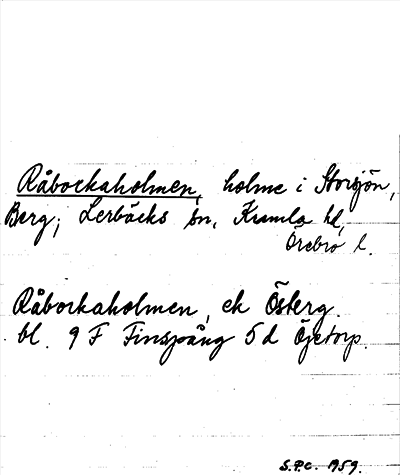 Råbockaholmen, holme i Storsjön,
Berg; Lerbäcks sn, Kumla hd,
Örebro l.
Råbockaholmen, ek Österg.
bl. 9 F Finspång 5 d Öjetorp.
S.P.C. 1959.